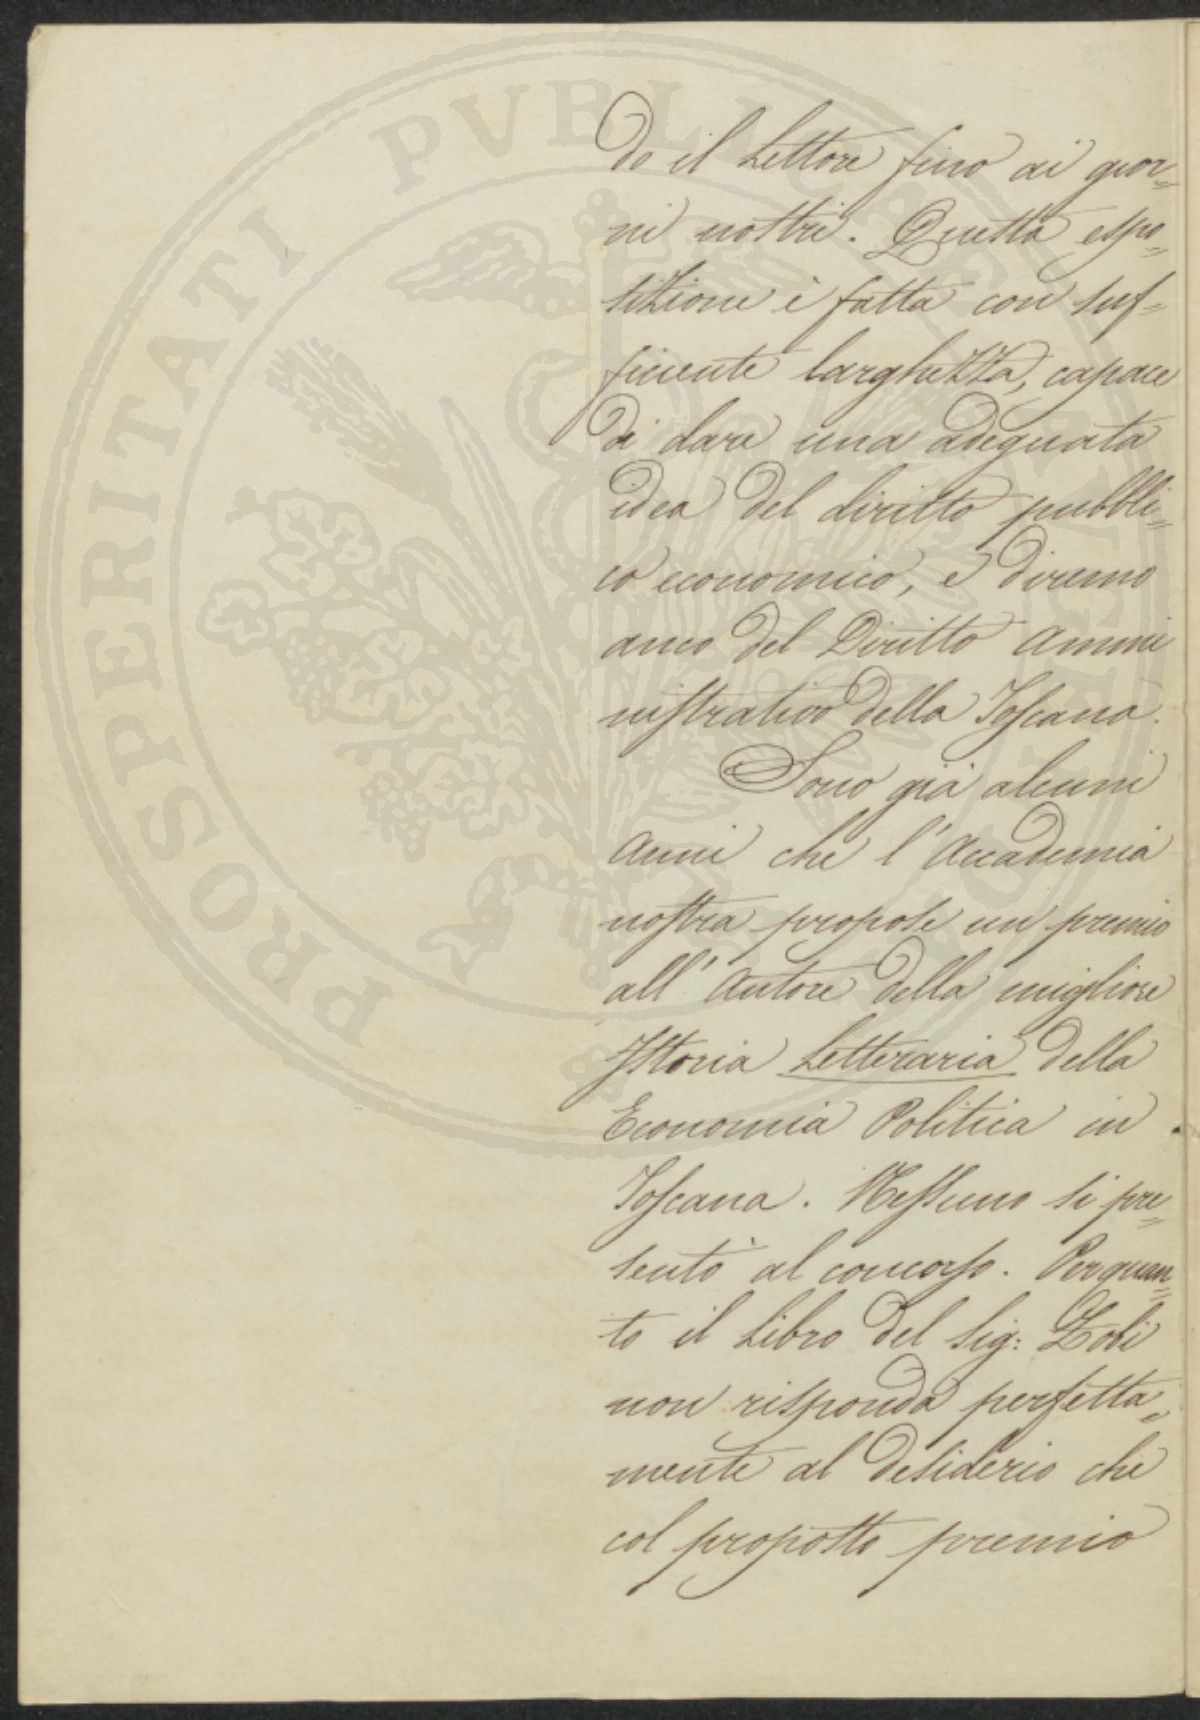 do il Lettore fino ai gior=
ni nostri. Questa espo=
sizione è fatta con suf=
ficiente larghezza, capace
di dare una adeguata
idea del diritto pubbli=
co economico, e diremo
anco del Diritto Ammi
nistrativo della Toscana.
Sono già alcuni
Anni che l'Accademia
nostra propose un premio
all'Autore della migliore
Istoria Letteraria della
Economia Politica in
Toscana. Nessuno si pre=
sentò al concorso. Perquan=
to il Libro del Sig: Zobi
non risponda perfetta=
mente al desiderio che
col proposto premio
PROSPERITATI PVBLICAE